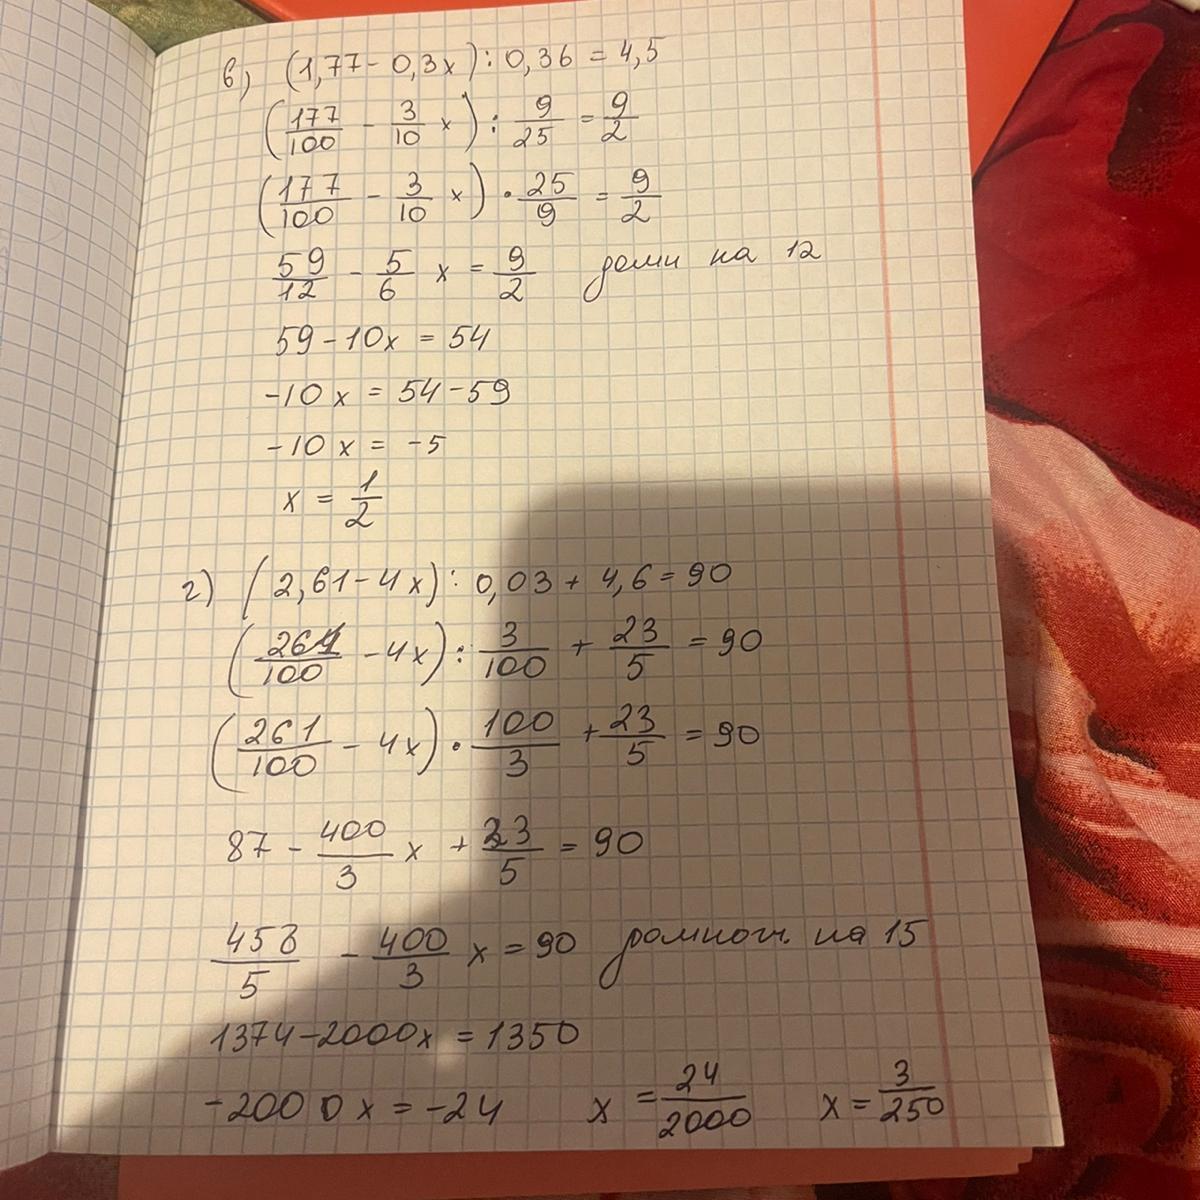 в) (1,77 - 0,3x) : 0,36 = 4,5
(177/100 - 3/10 x) : 9/25 = 9/2
(177/100 - 3/10 x) · 25/9 = 9/2
59/12 - 5/6 x = 9/2 домн на 12
59 - 10x = 54
-10x = 54 - 59
-10x = -5
x = 1/2
г) (2,61 - 4x) : 0,03 + 4,6 = 90
(261/100 - 4x) : 3/100 + 23/5 = 90
(261/100 - 4x) · 100/3 + 23/5 = 90
87 - 400/3 x + 23/5 = 90
458/5 - 400/3 x = 90 домнож. на 15
1374 - 2000x = 1350
-2000x = -24 x = 24/2000 x = 3/250